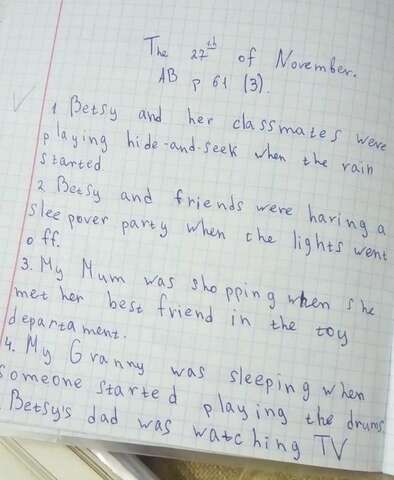 The 27th of November.
AB p 61 (3).
1 Betsy and her classmates were
playing hide-and-seek when the rain
started.
2 Betsy and friends were having a
sleepover party when the lights went
off.
3. My Mum was shopping when she
met her best friend in the toy
departament.
4. My Granny was sleeping when
someone started playing the drums.
Betsy's dad was watching TV